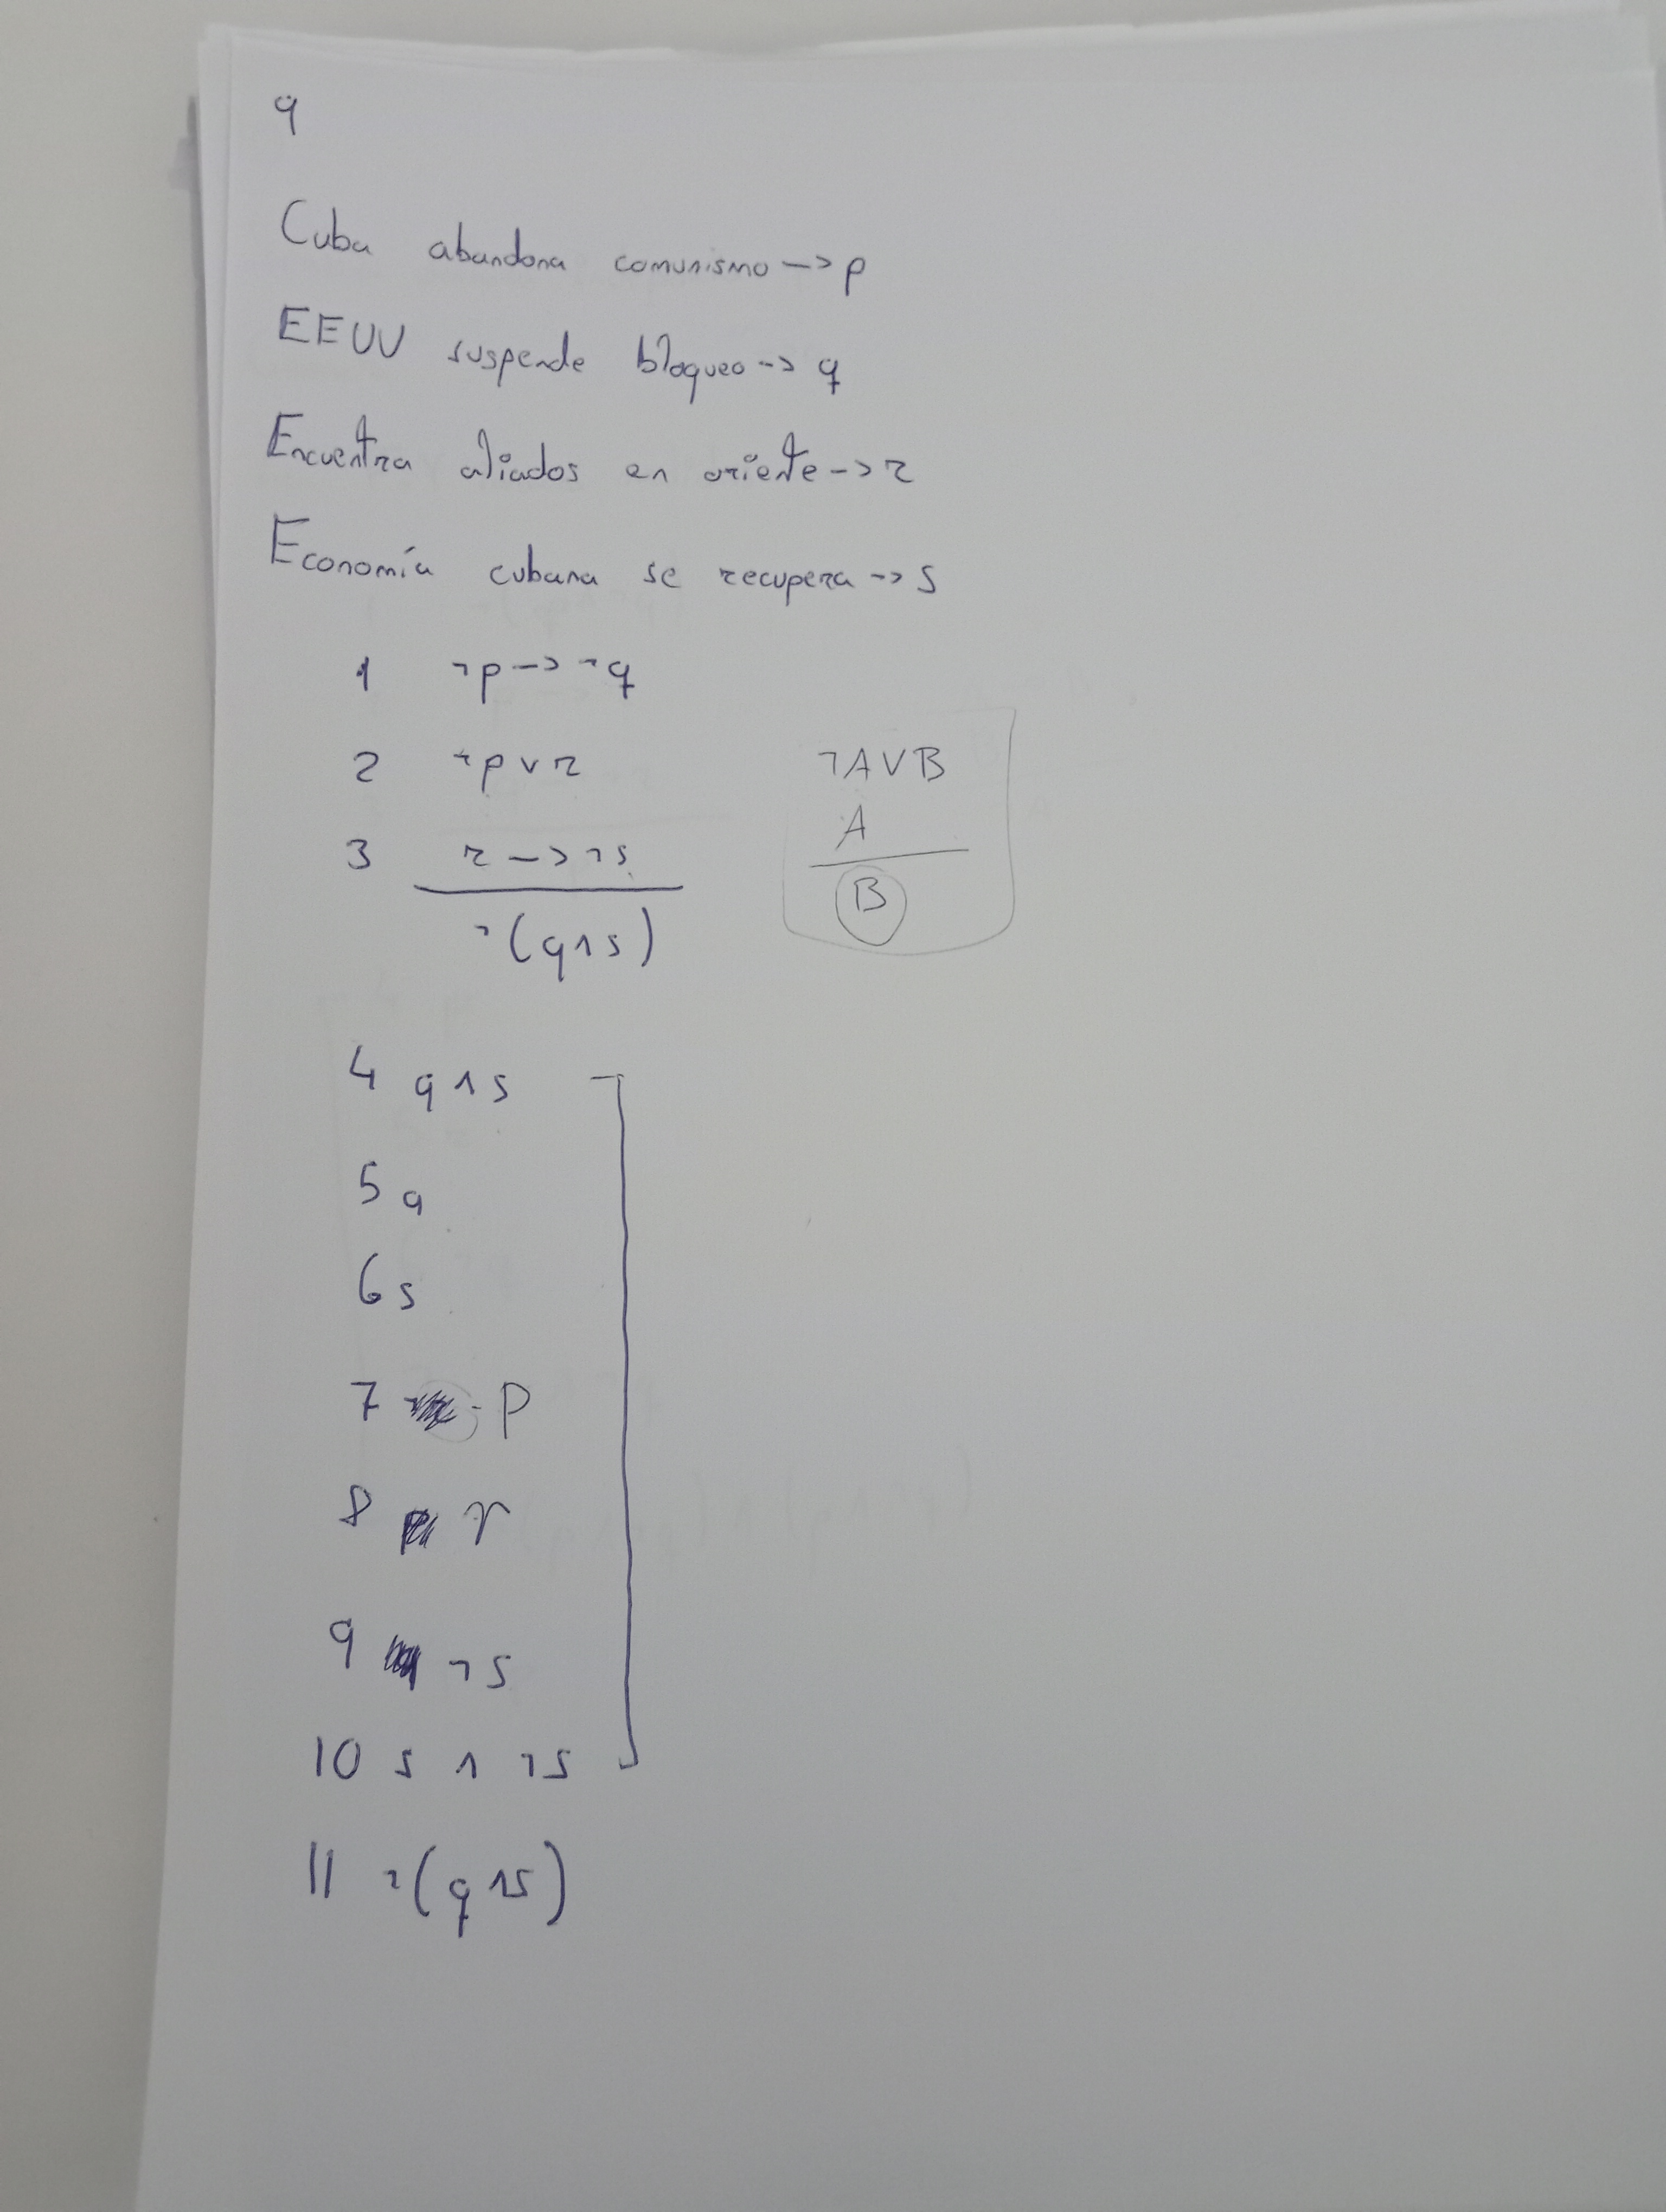 9
Cuba abandona comunismo -> p
EEUU suspende bloqueo -> q
Encuentra aliados en oriente -> r
Economía cubana se recupera -> s
1 ¬p -> ¬q
2 ¬p v r
3 r -> ¬s
¬(q ∧ s)
¬A V B
A
B
4 q ∧ s
5 q
6 s
7 P
8 r
9 ¬s
10 s ∧ ¬s
11 ¬(q ∧ s)